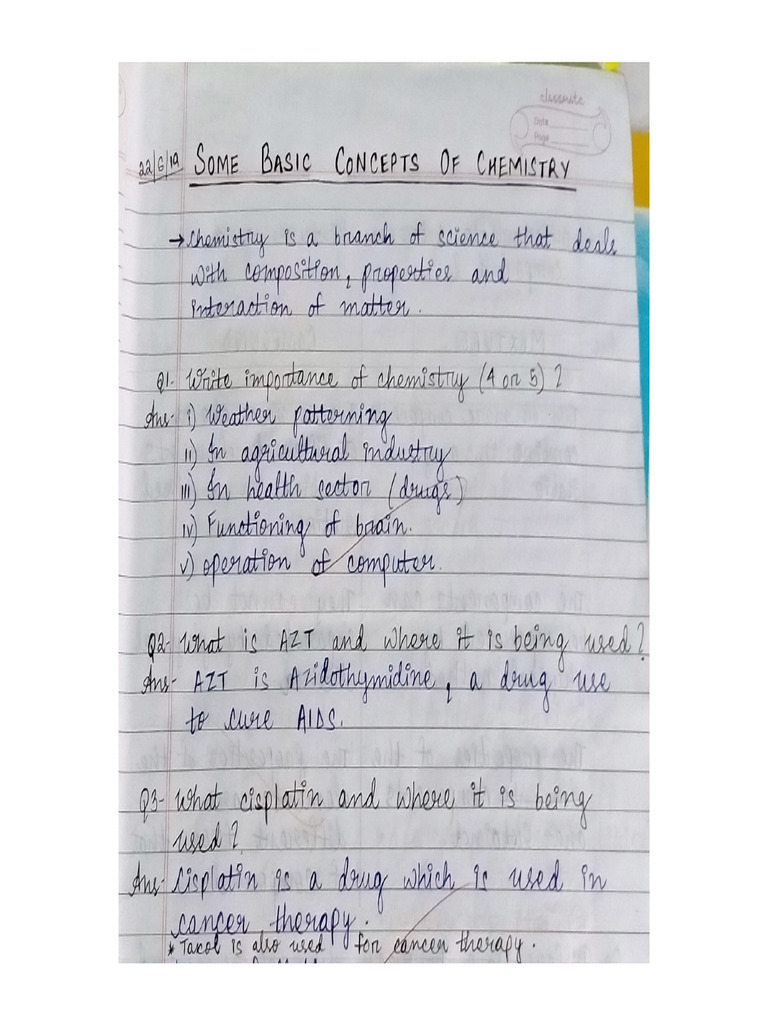 classmate
Date
Page
22/6/19 SOME BASIC CONCEPTS OF CHEMISTRY
→ Chemistry is a branch of science that deals
with composition, properties and
interaction of matter.
Q1- Write importance of chemistry (4 or 5) ?
Ans- i) Weather patterning
ii) In agricultural industry
iii) In health sector (drugs)
iv) Functioning of brain.
v) operation of computer.
Q2- What is AZT and where it is being used?
Ans- AZT is Azidothymidine, a drug use
to cure AIDS.
Q3- What cisplatin and where it is being
used?
Ans- Cisplatin is a drug which is used in
cancer therapy.
* Taxol is also used for cancer therapy.